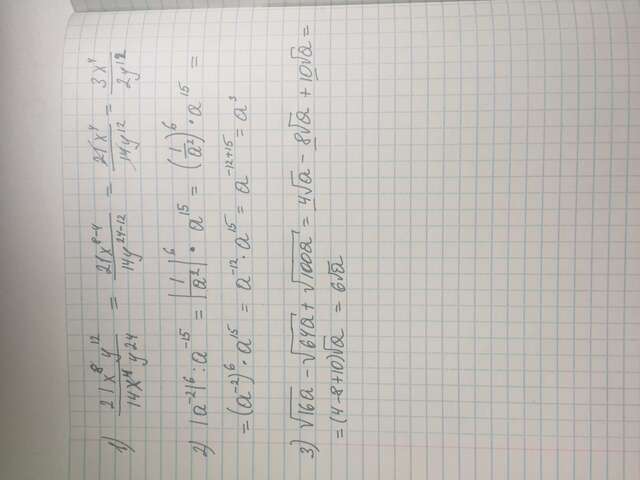 1) 21x⁸y¹²/14x⁴y²⁴ = 21x⁸⁻⁴/14y²⁴⁻¹² = 21x⁴/14y¹² = 3x⁴/2y¹²
2) |a⁻²|⁶ : a⁻¹⁵ = |1/a²|⁶ · a¹⁵ = (1/a²)⁶ · a¹⁵ =
= (a⁻²)⁶ · a¹⁵ = a⁻¹² · a¹⁵ = a⁻¹²⁺¹⁵ = a³
3) √16a - √64a + √100a = 4√a - 8√a + 10√a =
= (4-8+10)√a = 6√a